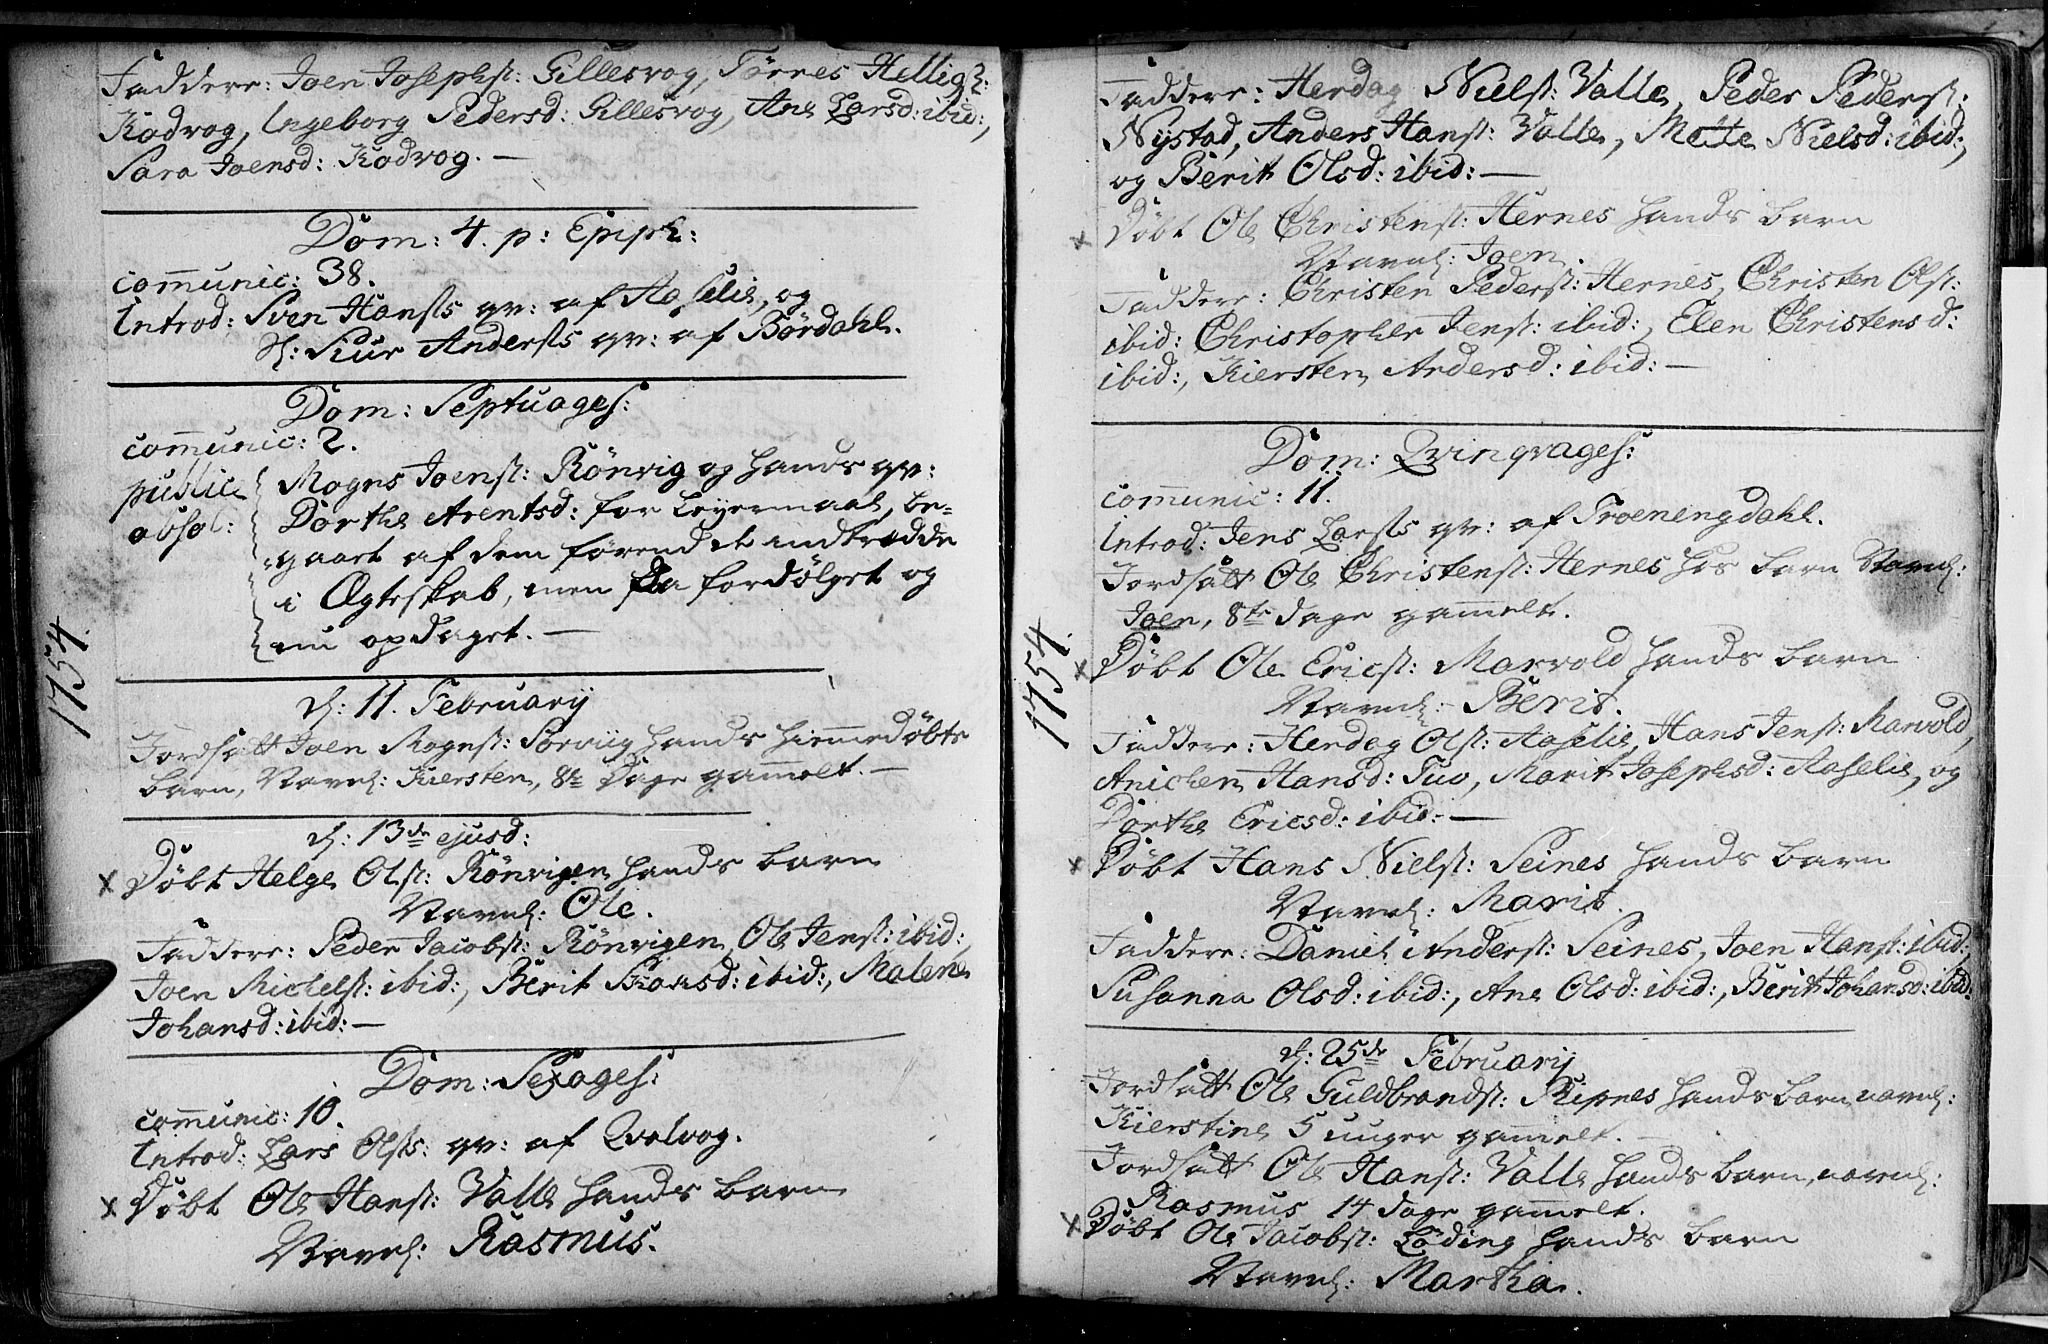 Faddere: Joen Josephs: Gillesvog, Törres Hellig
Kodvog, Ingeborg Pedersd: Gillesvog, Ane Larsd: ibid:,
Sara Joensd: Kodvog. —
Dom: 4. p: Epiph:
comunic: 38.
Introd: Sven Hansts qv: af Aaselie, og
d: Siur Andersts qv: af Bördahl.
Dom: Septuages:
comunic: 2.
publice absol:
Mogns Joenst: Rönvig og hands qv:
Dorthe Arentsd: for Leyermaal, be-
gaaet af dem förend de indtrædde
i Ægteskab, men da fordölget og
nu opdaget. —
1754.
d: 11. February
Jordsatt Joen Mognst: Sörviig hands hiemmedöbte
barn, Navnl: Kiersten, 8te Dage gammelt. —
d: 13de ejusd:
x Döbt Helge Olst: Rönvigen hands barn
Navnl: Ole.
Faddere: Peder Jacobst: Rönvigen, Ole Jenst: ibid:,
Joen Michelst: ibid:, Berit ibid:, Malene
Johansd: ibid: —
Dom: Sexages:
comunic: 10.
Introd: Lars Olsts: qv: af Qvalvog.
x Döbt Ole Hanst: Valle hands barn
Navnl: Rasmus.
Faddere: Herdag Nielst: Valle, Peder Pederst:
Nystad, Anders Hanst: Valle, Mette Nielsd: ibid:,
og Berit Olsd: ibid: —
x Döbt Ole Christenst: Hernes hands barn
Navnl: Joen.
Faddere: Christen Pederst: Hernes, Christen Olst:
ibid: Christopher Jenst: ibid:, Elen Christensd:
ibid:, Kiersten Andersd: ibid: —
Dom: Qvinqvages:
comunic: 11.
Introd: Jens Larsts qv: af Troeningdahl.
Jordsatt Ole Christenst: Hernes hos barn Navnl:
Joen, 8te dage gammelt.
1754.
x Döbt Ole Ericst: Marvold hands barn
Navnl: Berit.
Faddere: Herdag Olst: Aaselie, Hans Jenst: Marvold,
Anichen Hansd: Tuv, Marit Josephsd: Aaselie, og
Dorthe Ericsd: ibid: —
x Döbt Hans Nielst: Seines hands barn
Navnl: Marit.
Faddere: Daniel Anderst: Seines, Joen Hanst: ibid:,
Susanna Olsd: ibid:, Ane Olsd: ibid:, Berit Johansd: ibid:
d: 25de February
Jordsatt Ole Guldbrandst: Ripnes hands barn, navnl:
Kierstine 5 uuger gammelt. —
Jordsatt Ole Hanst: Valle hands barn, navnl:
Rasmus 14 dage gammelt.
x Döbt Ole Jacobst: Löding hands barn
Navnl: Martha.